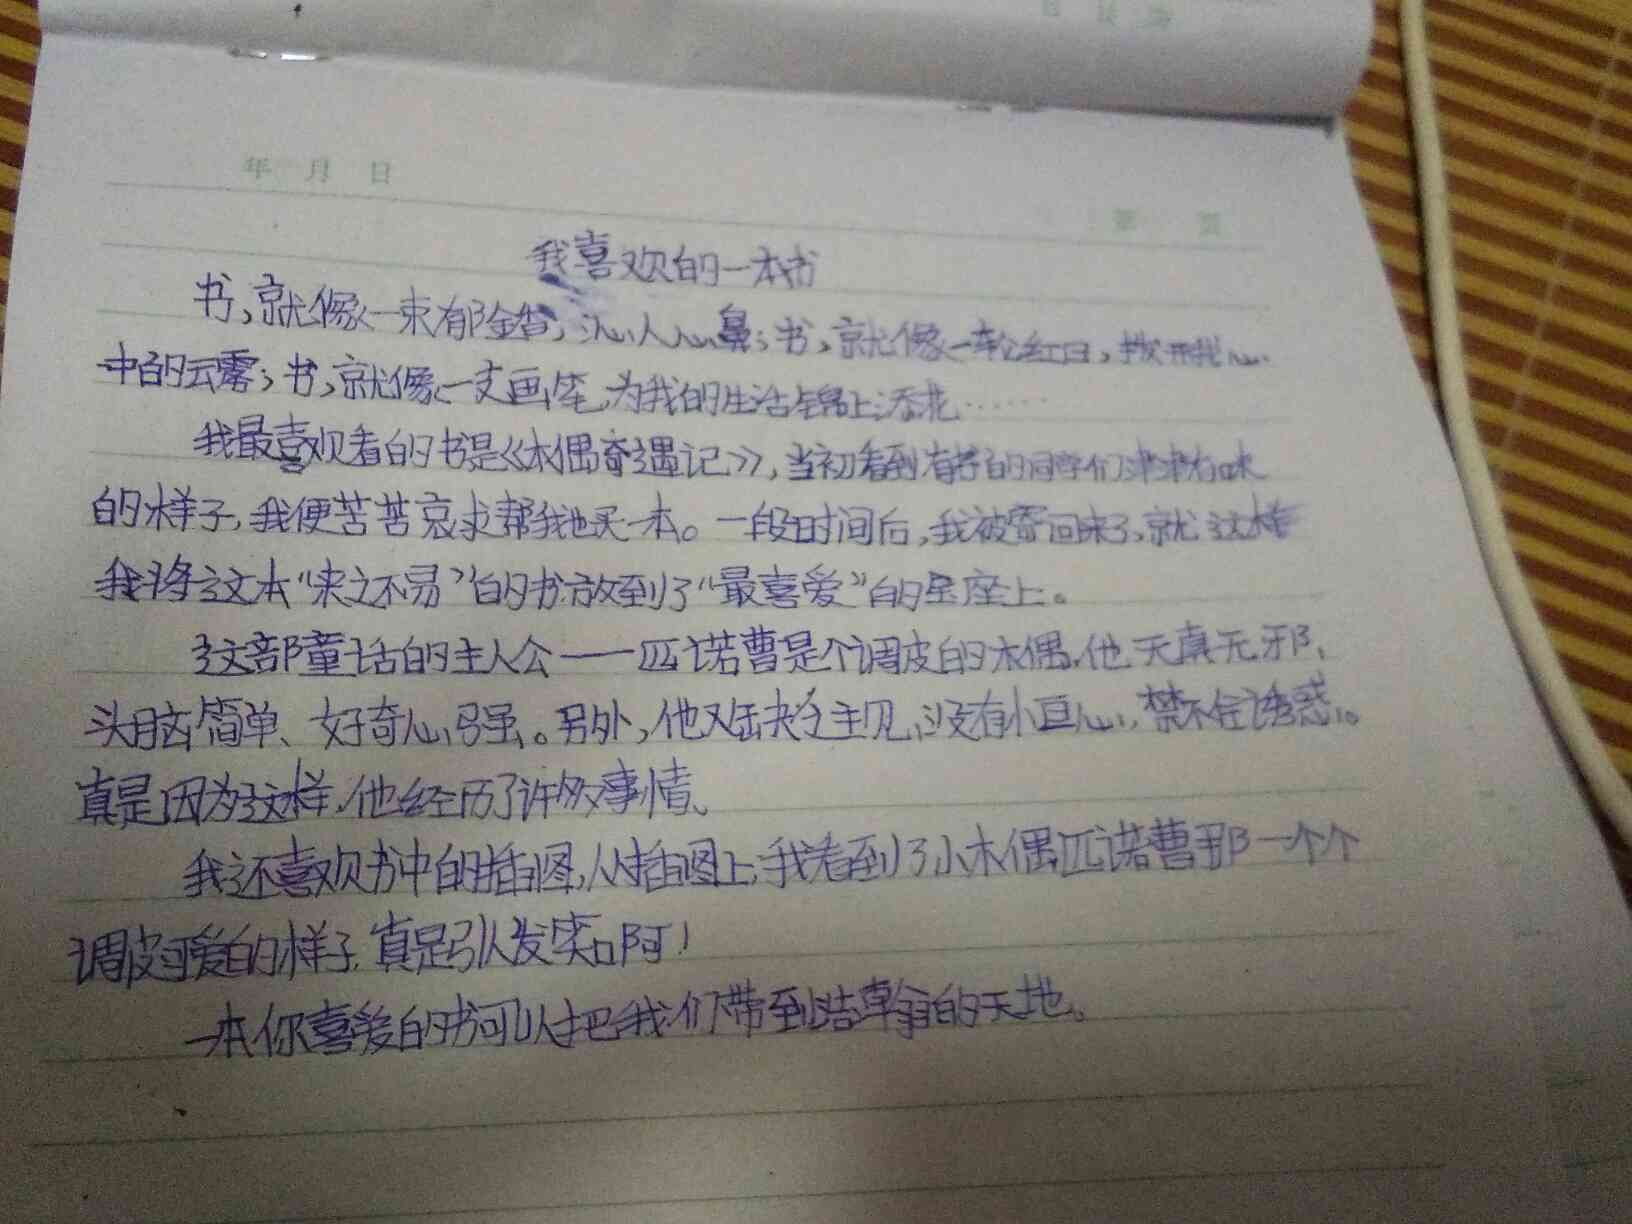 年 月 日
第 页
我喜欢的一本书
书,就像一束郁金香,沁人心鼻;书,就像一轮红日,拨开我心
中的云雾;书,就像一支画笔,为我的生活锦上添花……
我最喜欢看的书是《木偶奇遇记》,当初看到有书的同学们津津有味
的样子,我便苦苦哀求帮我也买一本。一段时间后,我被寄回来了,就这样
我将这本“来之不易”的书放到了“最喜爱”的星座上。
这部童话的主人公——匹诺曹是个调皮的木偶,他天真无邪、
头脑简单、好奇心强。另外,他又缺乏主见,没有小恒心,禁不住诱惑。
真是因为这样,他经历了许多事情。
我还喜欢书中的插图,从插图上,我看到了小木偶匹诺曹那一个个
调皮可爱的样子,真是引人发笑啊!
一本你喜爱的书可以把我们带到浩瀚的天地。